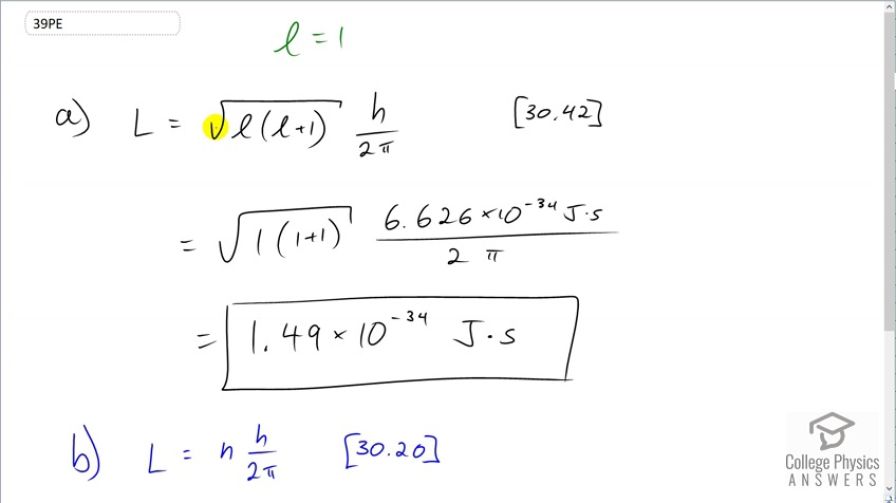 39PE
ℓ = 1
a) L = √ℓ(ℓ+1) h/2π [30.42]
= √1(1+1) 6.626×10⁻³⁴ J·s / 2π
= 1.49 × 10⁻³⁴ J·s
b) L = n h/2π [30.20]
College Physics
ANSWERS